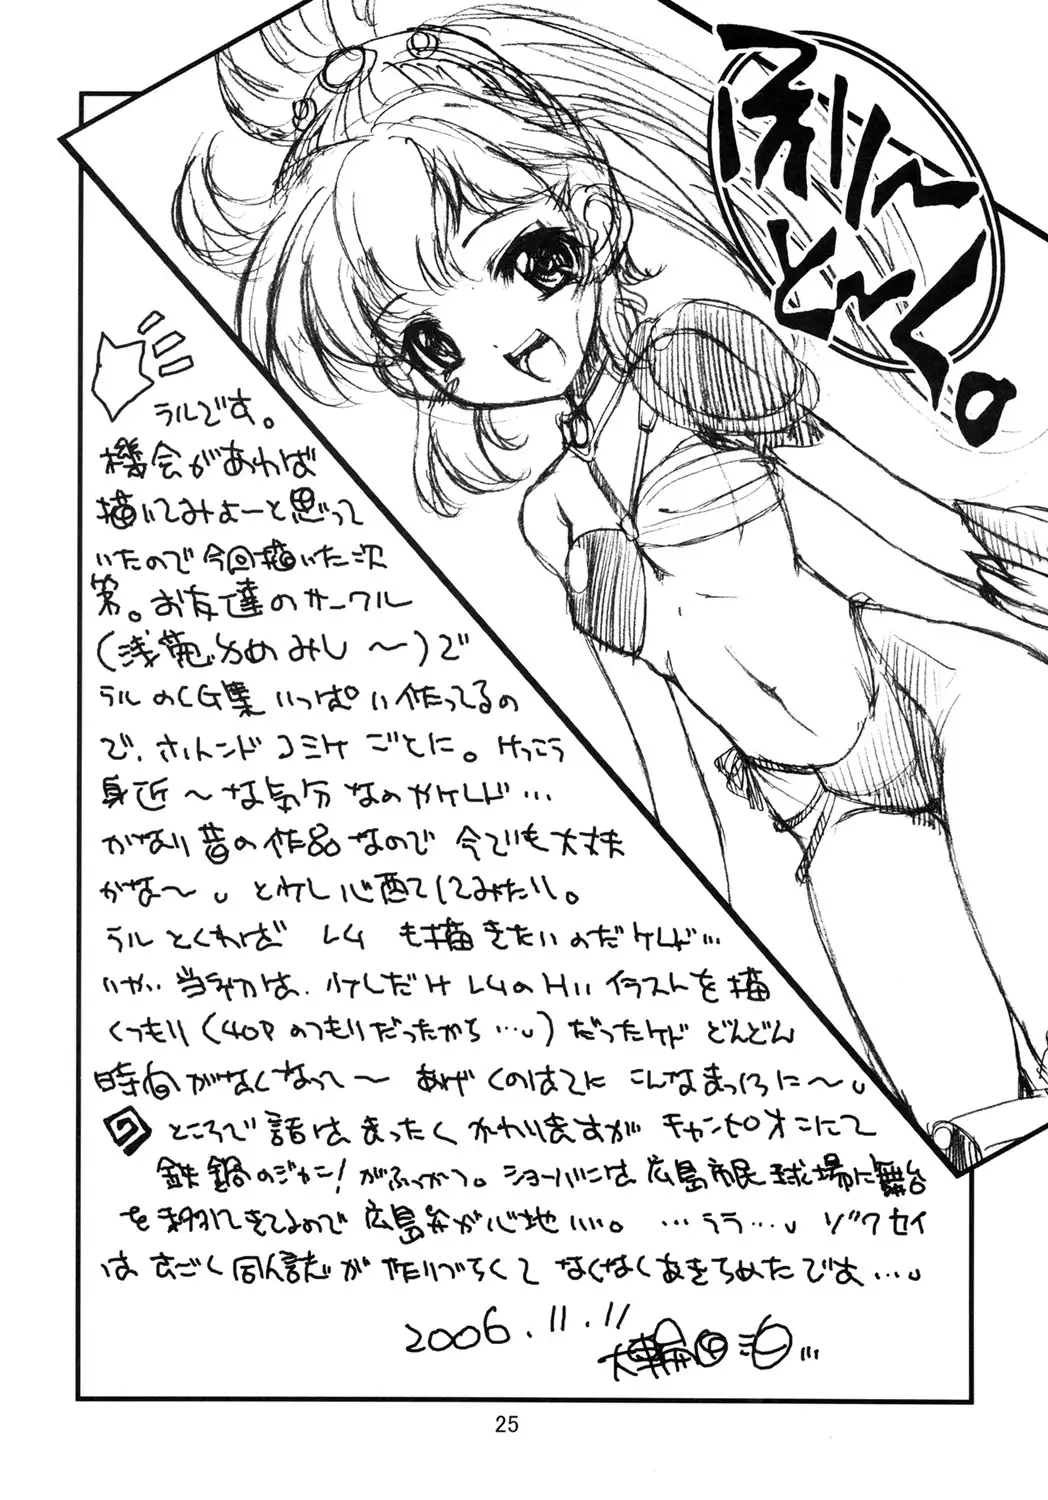 ふりーとーく。
ラルです。
機会があれば
描いてみよーと思って
いたので今回描いた次
第。お友達のサークル
(浅 かめ みし ～)で
ラルのCG集いっぱい作ってるの
で、ホトンド コミケごとに。けっこう
身近～な気分なのかケレド…
かなり昔の作品なので 今でも大丈夫
かな～。と少し心配してみたり。
ラルとくれば レム も描きたいのだケレド…
いや… 当初は、少しだけ レムのHいイラストを描
くつもり(40Pのつもりだったから…)だったケド どんどん
時間がなくなって～ あげくのはてに こんなまっ に～
ところで話はまったくかわりますが チャンピオンにて
鉄鍋のジャン!がふっかつ。ショーバンは広島市民球場に舞台
を 移してきてるので広島弁が心地いい。…うう… ゾクセイ
はすごく同人誌が作りづらくて なくなくあきらめたです…
2006.11.11
大輪
25